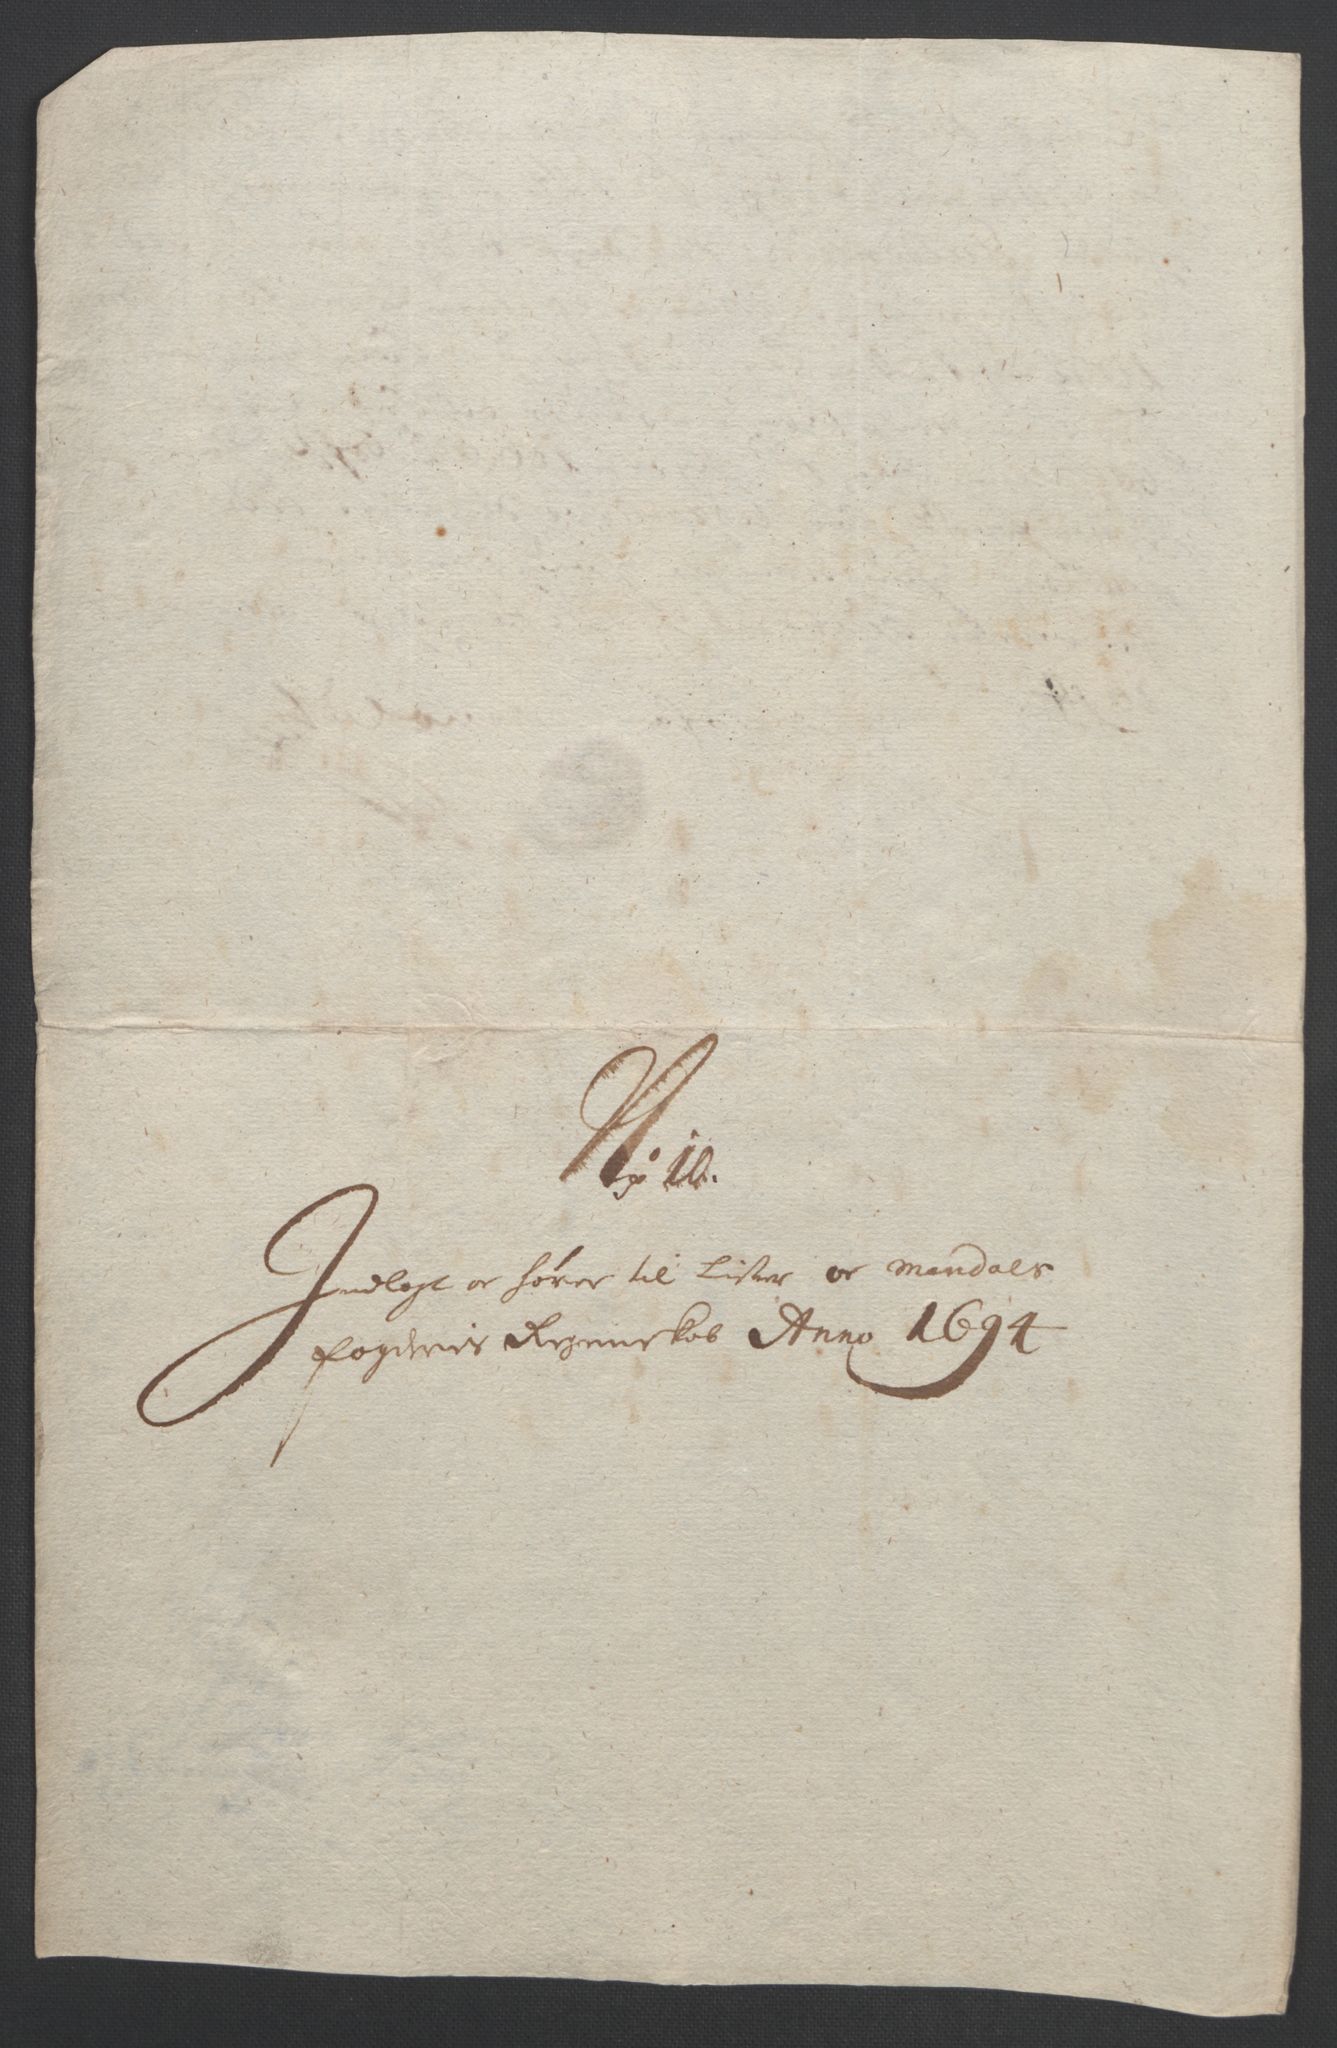 No: 16.
Indlagt oc hører til Lister oc Mandals
fogderies Regenskab Anno 1694